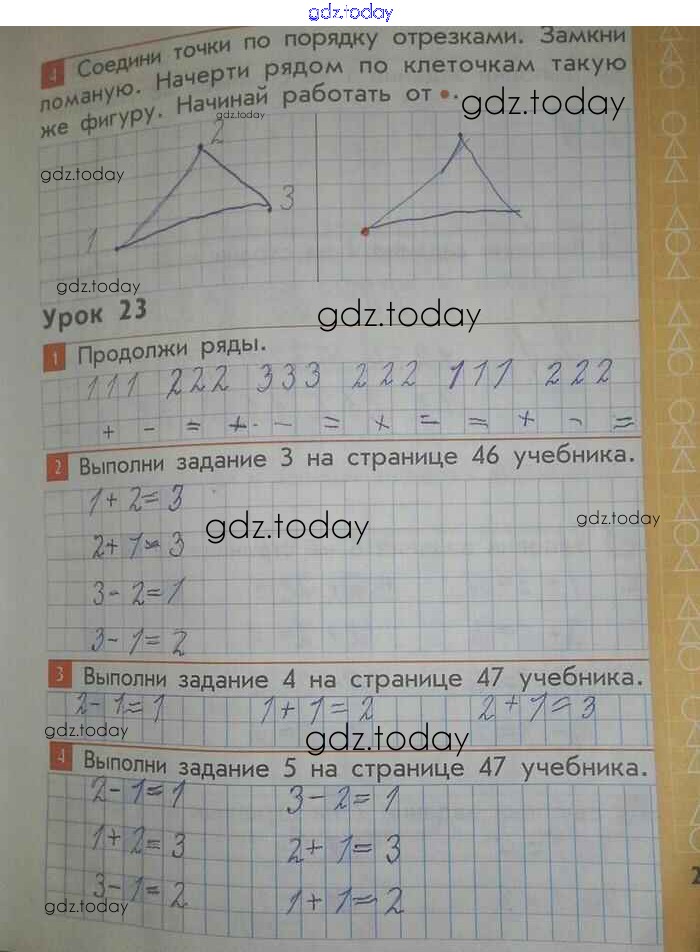 gdz.today
4 Соедини точки по порядку отрезками. Замкни
ломаную. Начерти рядом по клеточкам такую
же фигуру. Начинай работать от •.
gdz.today
gdz.today
gdz.today
2
3
1
gdz.today
Урок 23
gdz.today
1 Продолжи ряды.
111 222 333 222 111 222
+ - = + · - = + = = + - =
2 Выполни задание 3 на странице 46 учебника.
1+2=3
gdz.today
gdz.today
2+1=3
3-2=1
3-1=2
3 Выполни задание 4 на странице 47 учебника.
2-1=1 1+1=2 2+1=3
gdz.today
gdz.today
4 Выполни задание 5 на странице 47 учебника.
2-1=1 3-2=1
1+2=3 2+1=3
3-1=2 1+1=2
gdz.today
2